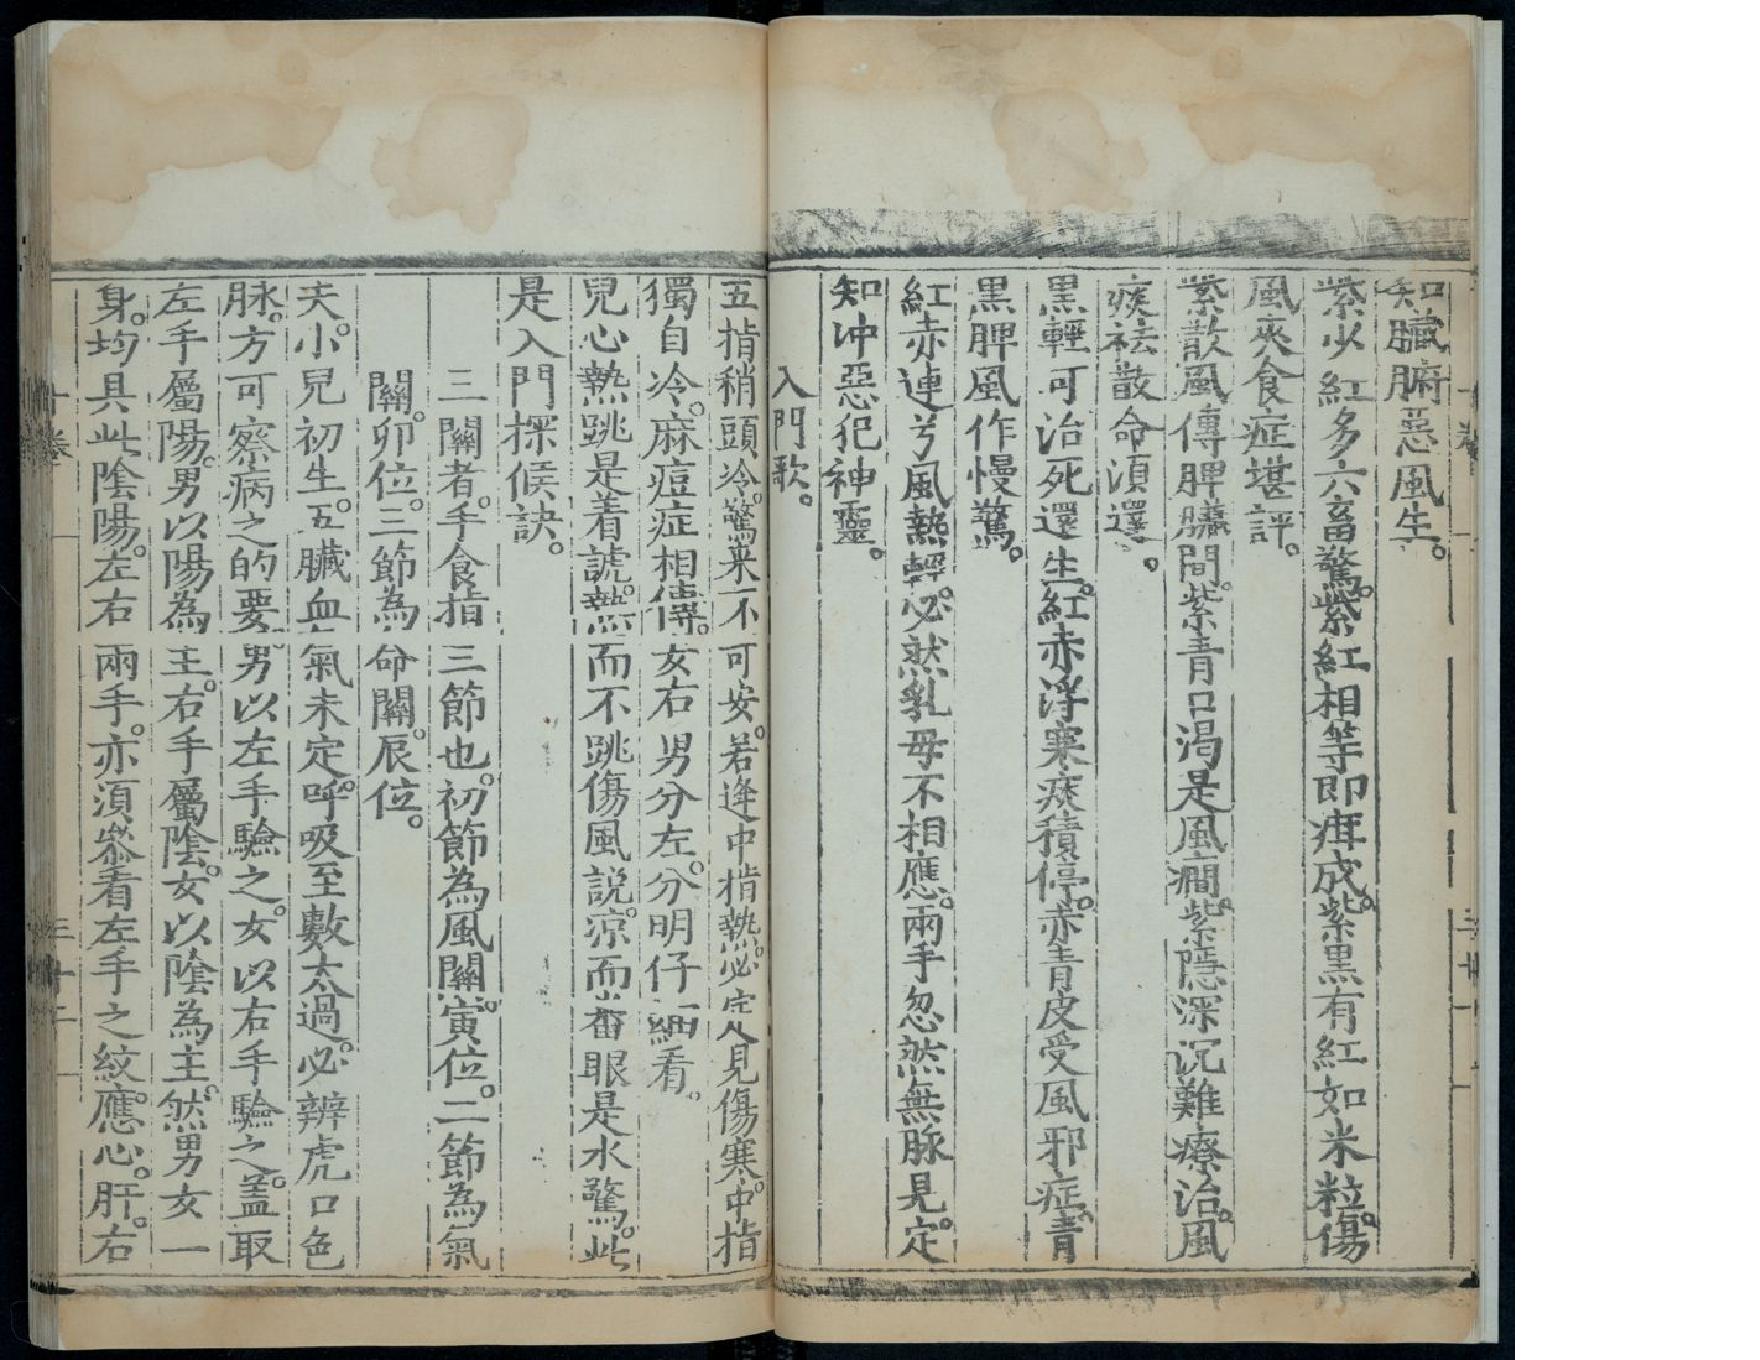 知臟腑惡風生。
紫少紅多六畜驚。紫紅相等即疳成。紫黑有紅如米粒。傷
風夾食症堪評。
紫散風傳脾臟間。紫青口渴是風癇。紫隱深沉難療治。風
痰祛散命須還。
黒輕可治死還生。紅赤浮寒痰積停。赤青皮受風邪症。青
黒脾風作慢驚。
紅赤連兮風熱輕。必然乳母不相應。兩手忽然無脉見。定
知冲惡犯神靈。
入門歌。
五指稍頭冷。驚来不可安。若逢中指熱。必定是傷寒。中指
獨自冷。麻痘症相傳。女右男分左。分明仔細看。
兒心熱跳是着諕。熱而不跳傷風説。涼而畨眼是水驚。此
是入門探候訣。
三關者。手食指三節也。初節為風關。寅位。二節為氣
關。卯位。三節為命關。辰位。
夫小兒初生。五臟血氣未定。呼吸至數太過。必辨虎口色
脉。方可察病之的要。男以左手驗之。女以右手驗之。盖取
左手屬陽。男以陽為主。右手屬陰。女以陰為主。然男女一
身。均具此陰陽。左右兩手。亦須叅看左手之紋應心。肝。右
十卷
三十二